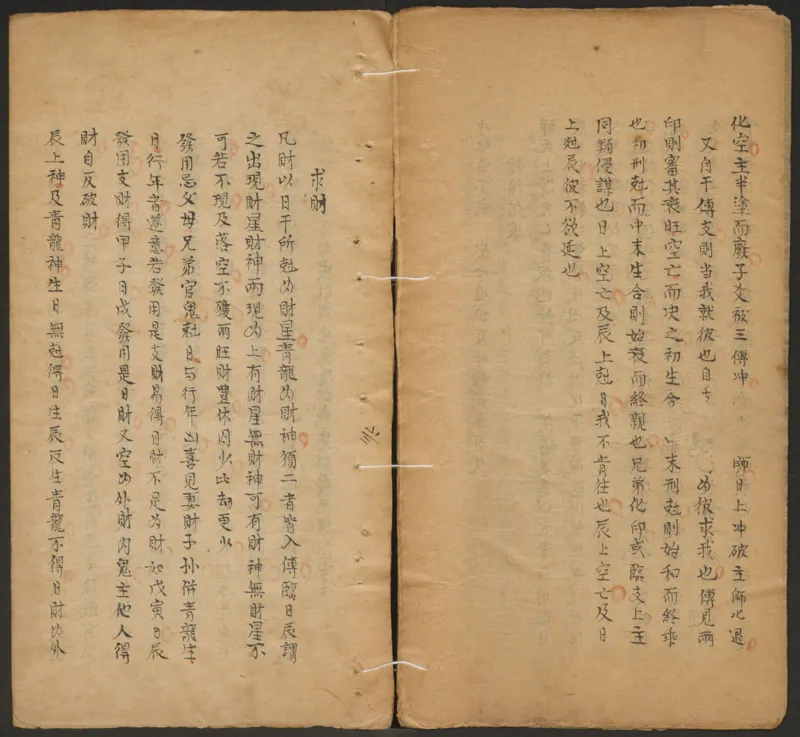 化空主半塗而廢子爻被三傳冲 師日上冲破主師必退
又自干傳支則当我就彼也自支 為彼求我也傳見兩
印則審其衰旺空亡而决之初生合 末刑尅則始和而終乖
也初刑尅而中末生合則始衰而終親也兄弟化印或臨支上主
同類侵謀也日上空亡及辰上尅日我不肯往也辰上空亡及日
上尅辰彼不欲延也
求財
凡財以日干所尅為財星青龍為財神須二者皆入傳臨日辰謂
之出現財星財神兩現為上有財星無財神可有財神無財星不
可若不現及落空不獲而旺財豊休囚少比劫更少
發用忌父母兄弟官鬼尅日与行年凶喜見妻財子孙併青龍生
日行年者遂意若發用是支財易得日財不足為財如戊寅日辰
發用支財得甲子日戌發用是日財又空為外財內鬼主他人得
財自反破財
辰上神及青龍神生日無尅得日生辰反生青龍不得日財為外